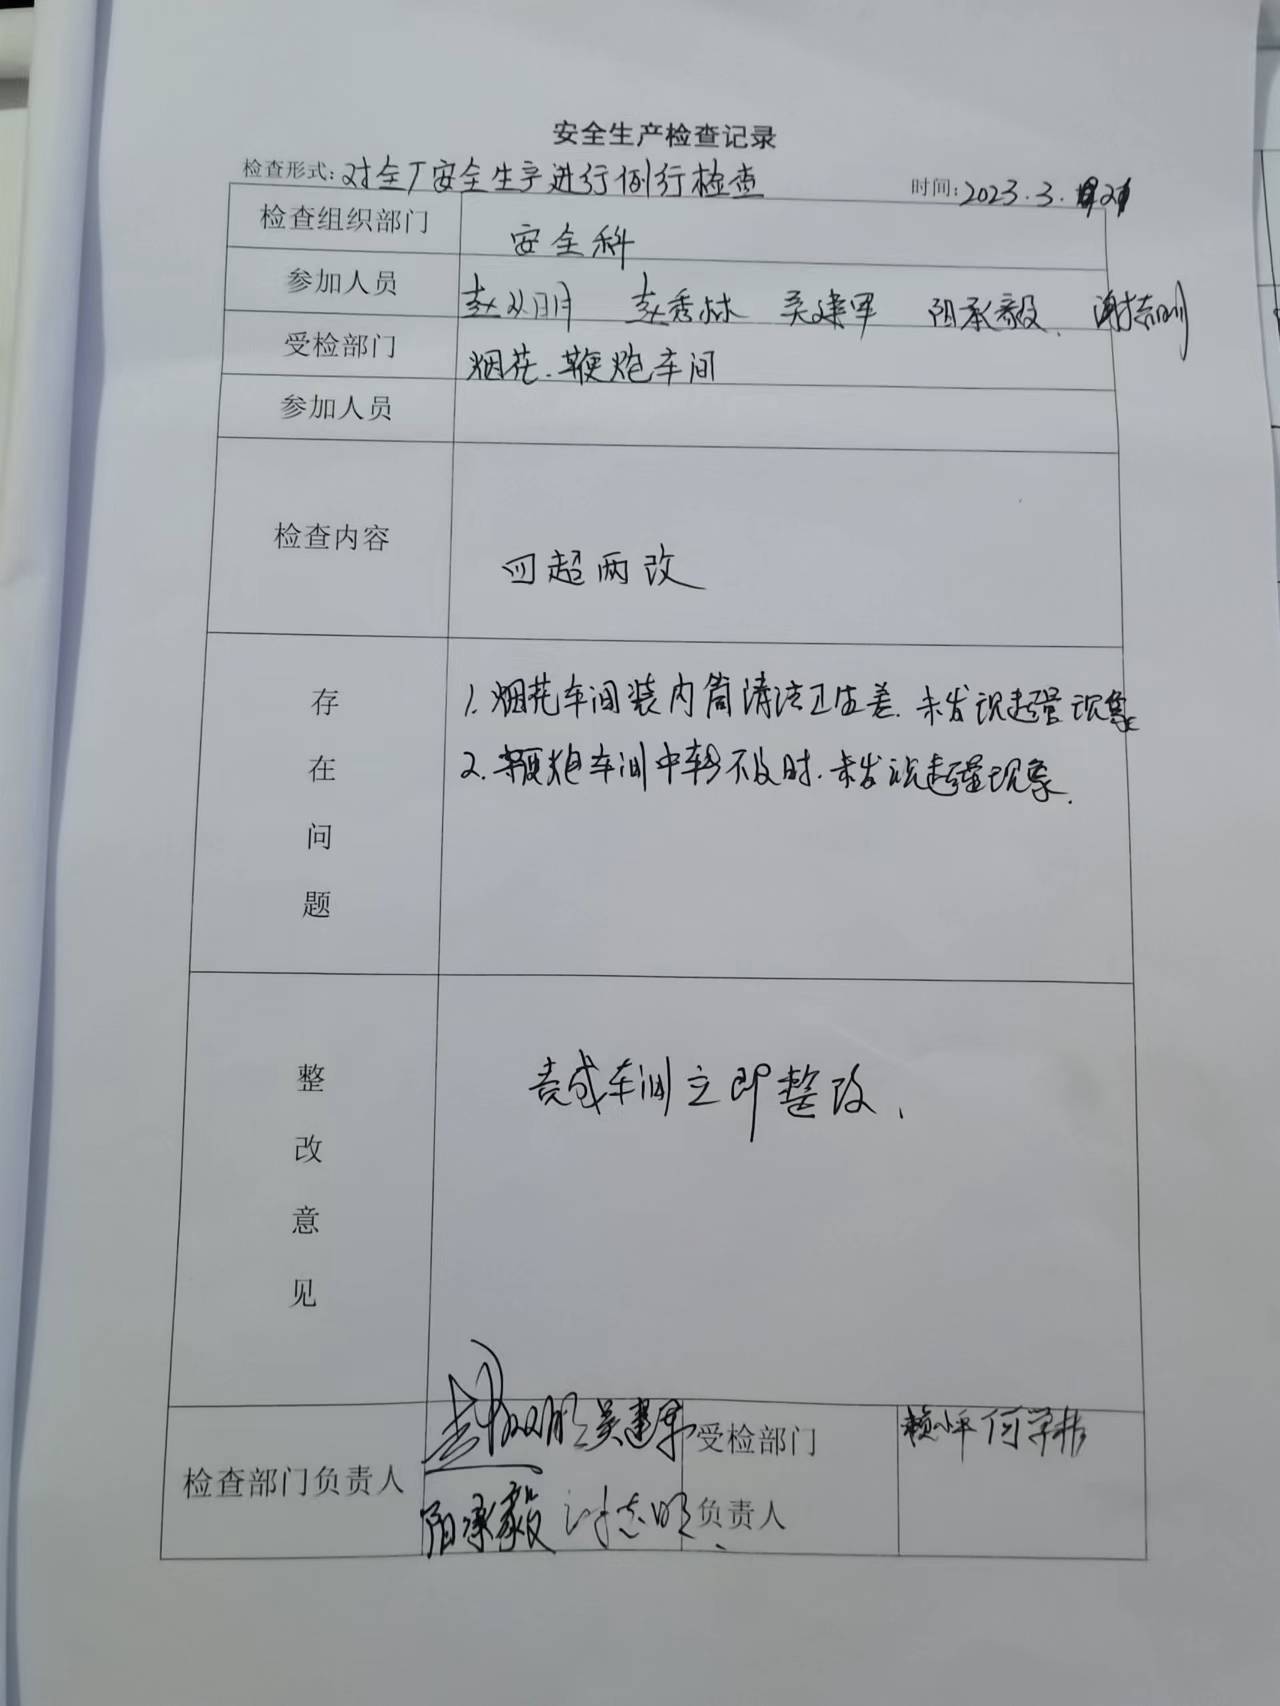 安全生产检查记录
检查形式：对全厂安全生产进行例行检查 时间：2023.3.21
检查组织部门 安全科
参加人员 赵双明 赵秀林 吴建军 阳承毅 谢志明
受检部门 烟花、鞭炮车间
参加人员
检查内容 四超两改
存在问题
1. 烟花车间装内筒清洁卫生差. 未发现超量现象
2. 鞭炮车间中转不及时. 未发现超量现象.
整改意见
责成车间立即整改.
检查部门负责人 赵双明 吴建军 阳承毅 谢志明
受检部门负责人 何学